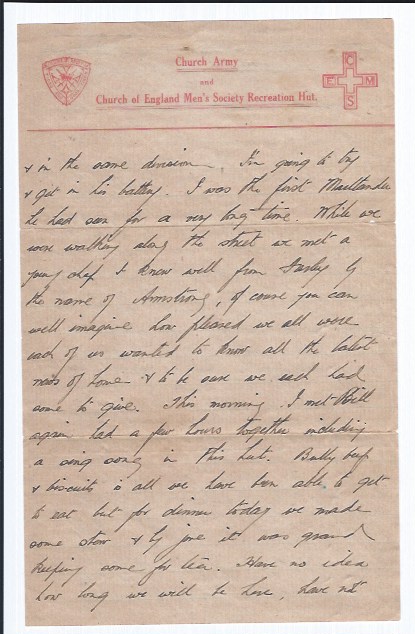 Church Army
and
Church of England Men's Society Recreation Hut.
C
E M
S
& in the same division. I'm going to try
& get in his battery. I was the first Maitlander
he had seen for a very long time. While we
were walking along the street we met a
young chap I knew well from by
the name of Armstrong, of course you can
well imagine how pleased we all were
each of us wanted to know all the latest
news of home & to be sure we each had
some to give. This morning I met Bill
again had a few hours together including
a sing song in this hut. Bully beef
& biscuits is all we have been able to get
to eat but for dinner today we made
some stew & by jove it was grand
keeping some for tea. Have no idea
how long we will be here, have not